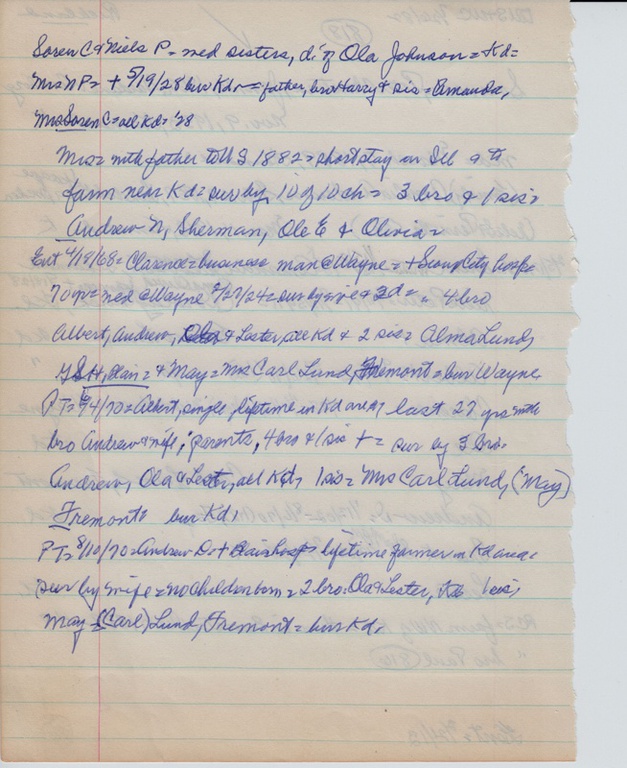 Soren C & Niels P = med sisters, d. of Ola Johnson = Kd =
Mrs NP = + 5/19/28 bur Kd = father, bro Harry & sis = Amanda,
Mrs Soren C = all Kd = '28
Mrs = with father to US 1882 = short stay in Ill
farm near Kd = sur by 10 of 10 ch = 3 bro & 1 sis =
Andrew N, Sherman, Ole E & Olivia =
Ent 4/18/68 = Clarence = business man @ Wayne = + Sioux City hosp
70 yr = med @ Wayne = sur by wife & = 4 bro
Albert, Andrew, Ola & Lester, all Kd & 2 sis = Alma Lund,
Blair = & May = Mrs Carl Lund, Fremont = bur Wayne
PT = Albert, single, lifetime in Kd area, last 27 yrs with
bro Andrew & wife, parents, 4 bro & 1 sis + = sur by 3 bro =
Andrew, Ola & Lester, all Kd, 1 sis = Mrs Carl Lund, (May)
Fremont = bur Kd,
PT = 8/10/70 = Andrew D. + Blair hosp lifetime farmer in Kd area
sur by wife = no children born = 2 bro: Ola & Lester, Kd 1 sis,
May = (Carl) Lund, Fremont = bur Kd,